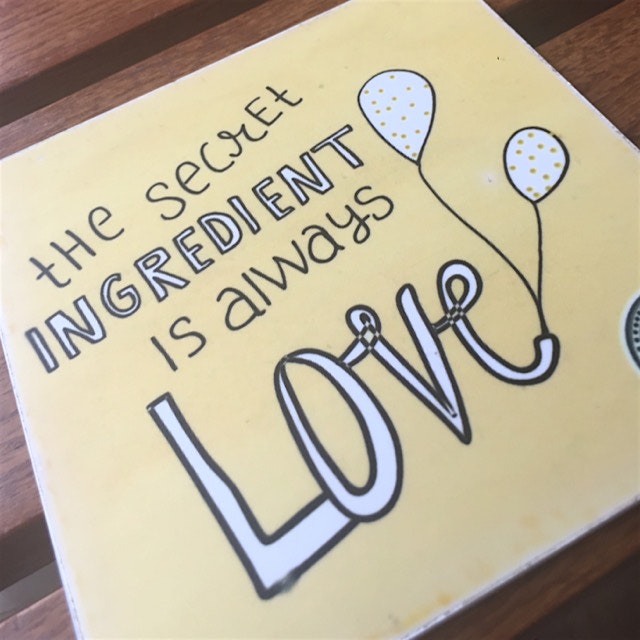 tHe secret
INGREDIENT
IS always
LOVe